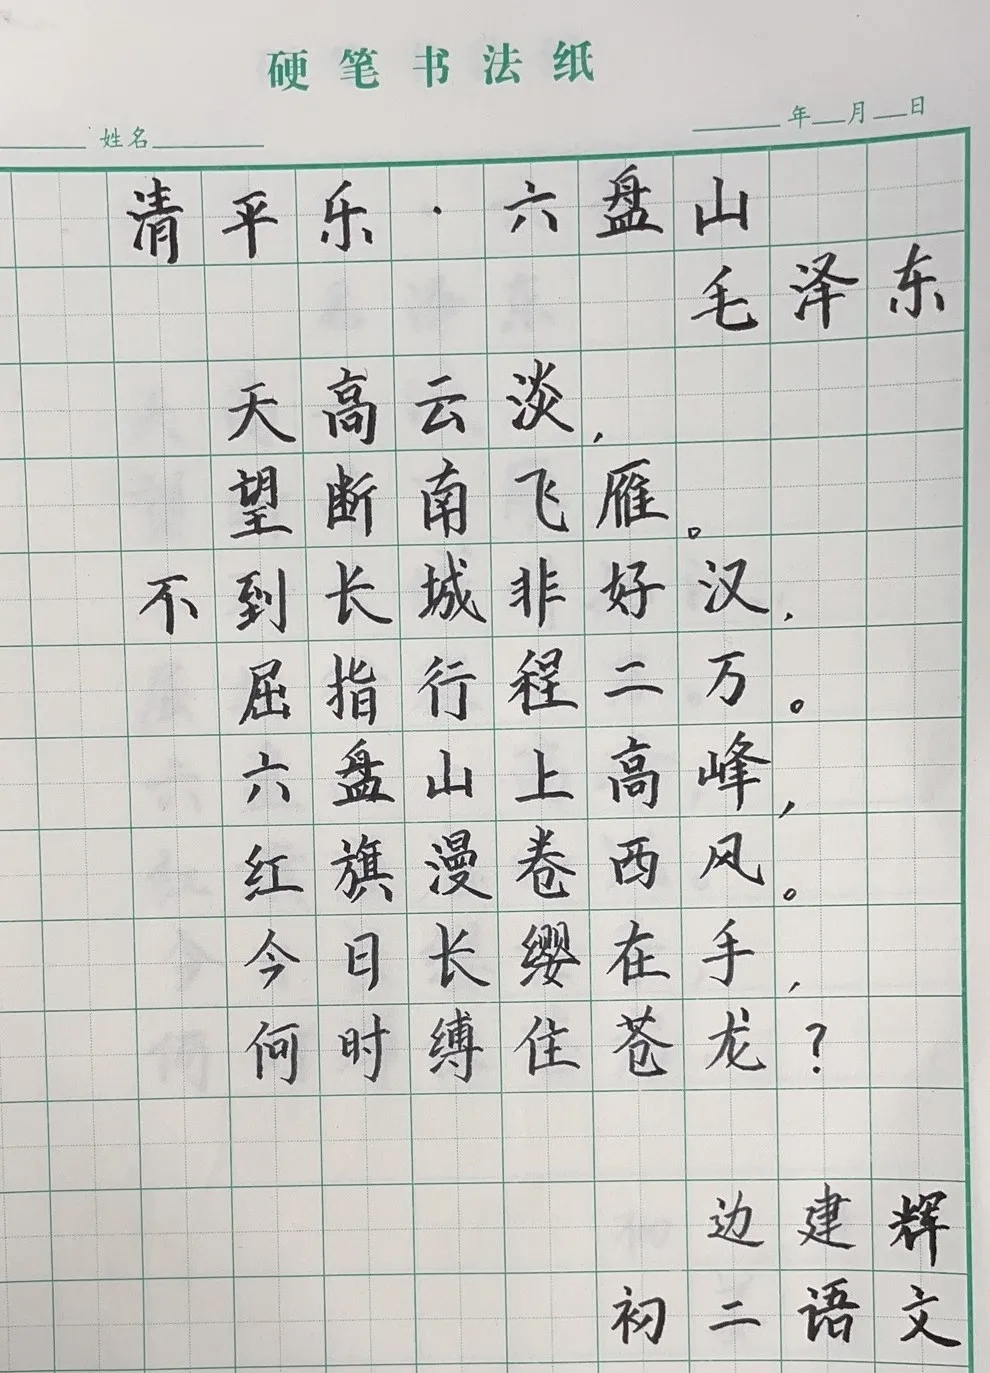 硬笔书法纸
姓名 年 月 日
清平乐·六盘山
毛泽东
天高云淡,
望断南飞雁。
不到长城非好汉,
屈指行程二万。
六盘山上高峰,
红旗漫卷西风。
今日长缨在手,
何时缚住苍龙?
边建辉
初二语文